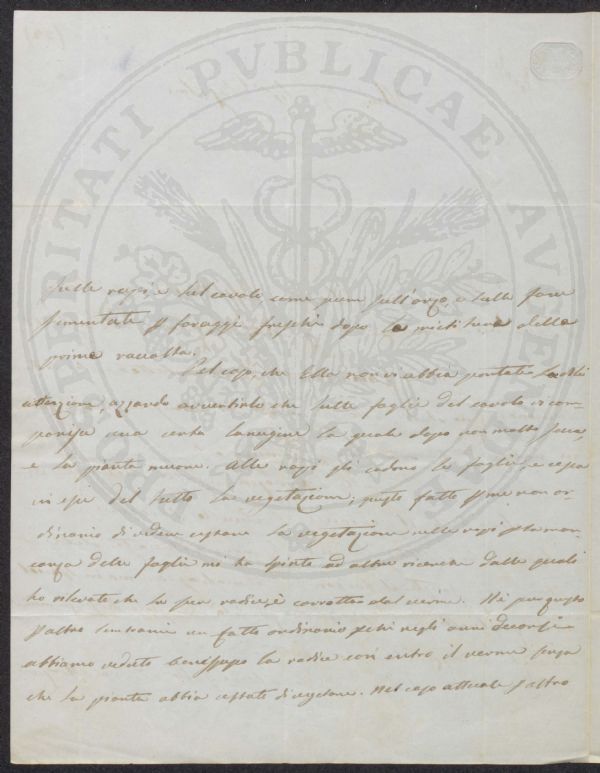 PROSPERITATI PVBLICAE AVGENDAE
sulle rape, e sul cavolo come pure sull'orzo, e sulle fave
sementate p foraggi freschi dopo la mietitura della
prima raccolta.
Nel caso, che Ella non vi abbia portato la di Lei
attenzione, azzardo avvertirla che sulle foglie del cavolo vi com-
parisce una certa lanugine la quale dopo non molto secca,
e la pianta muore. Alle rape poi cadono le foglie, e cessa
in esse del tutto la vegetazione; questo fatto p me non or-
dinario di vedere cessare la vegetazione nelle rape p la man-
canza delle foglie mi ha spinto ad altre ricerche dalle quali
ho rilevato che la radice è corrotta dal verme. Nè per questo
p altro sembrami un fatto ordinario pchè negli anni decorsi
abbiamo veduto la radice con entro il verme senza
che la pianta abbia cessato di vegetare. Nel caso attuale p altro